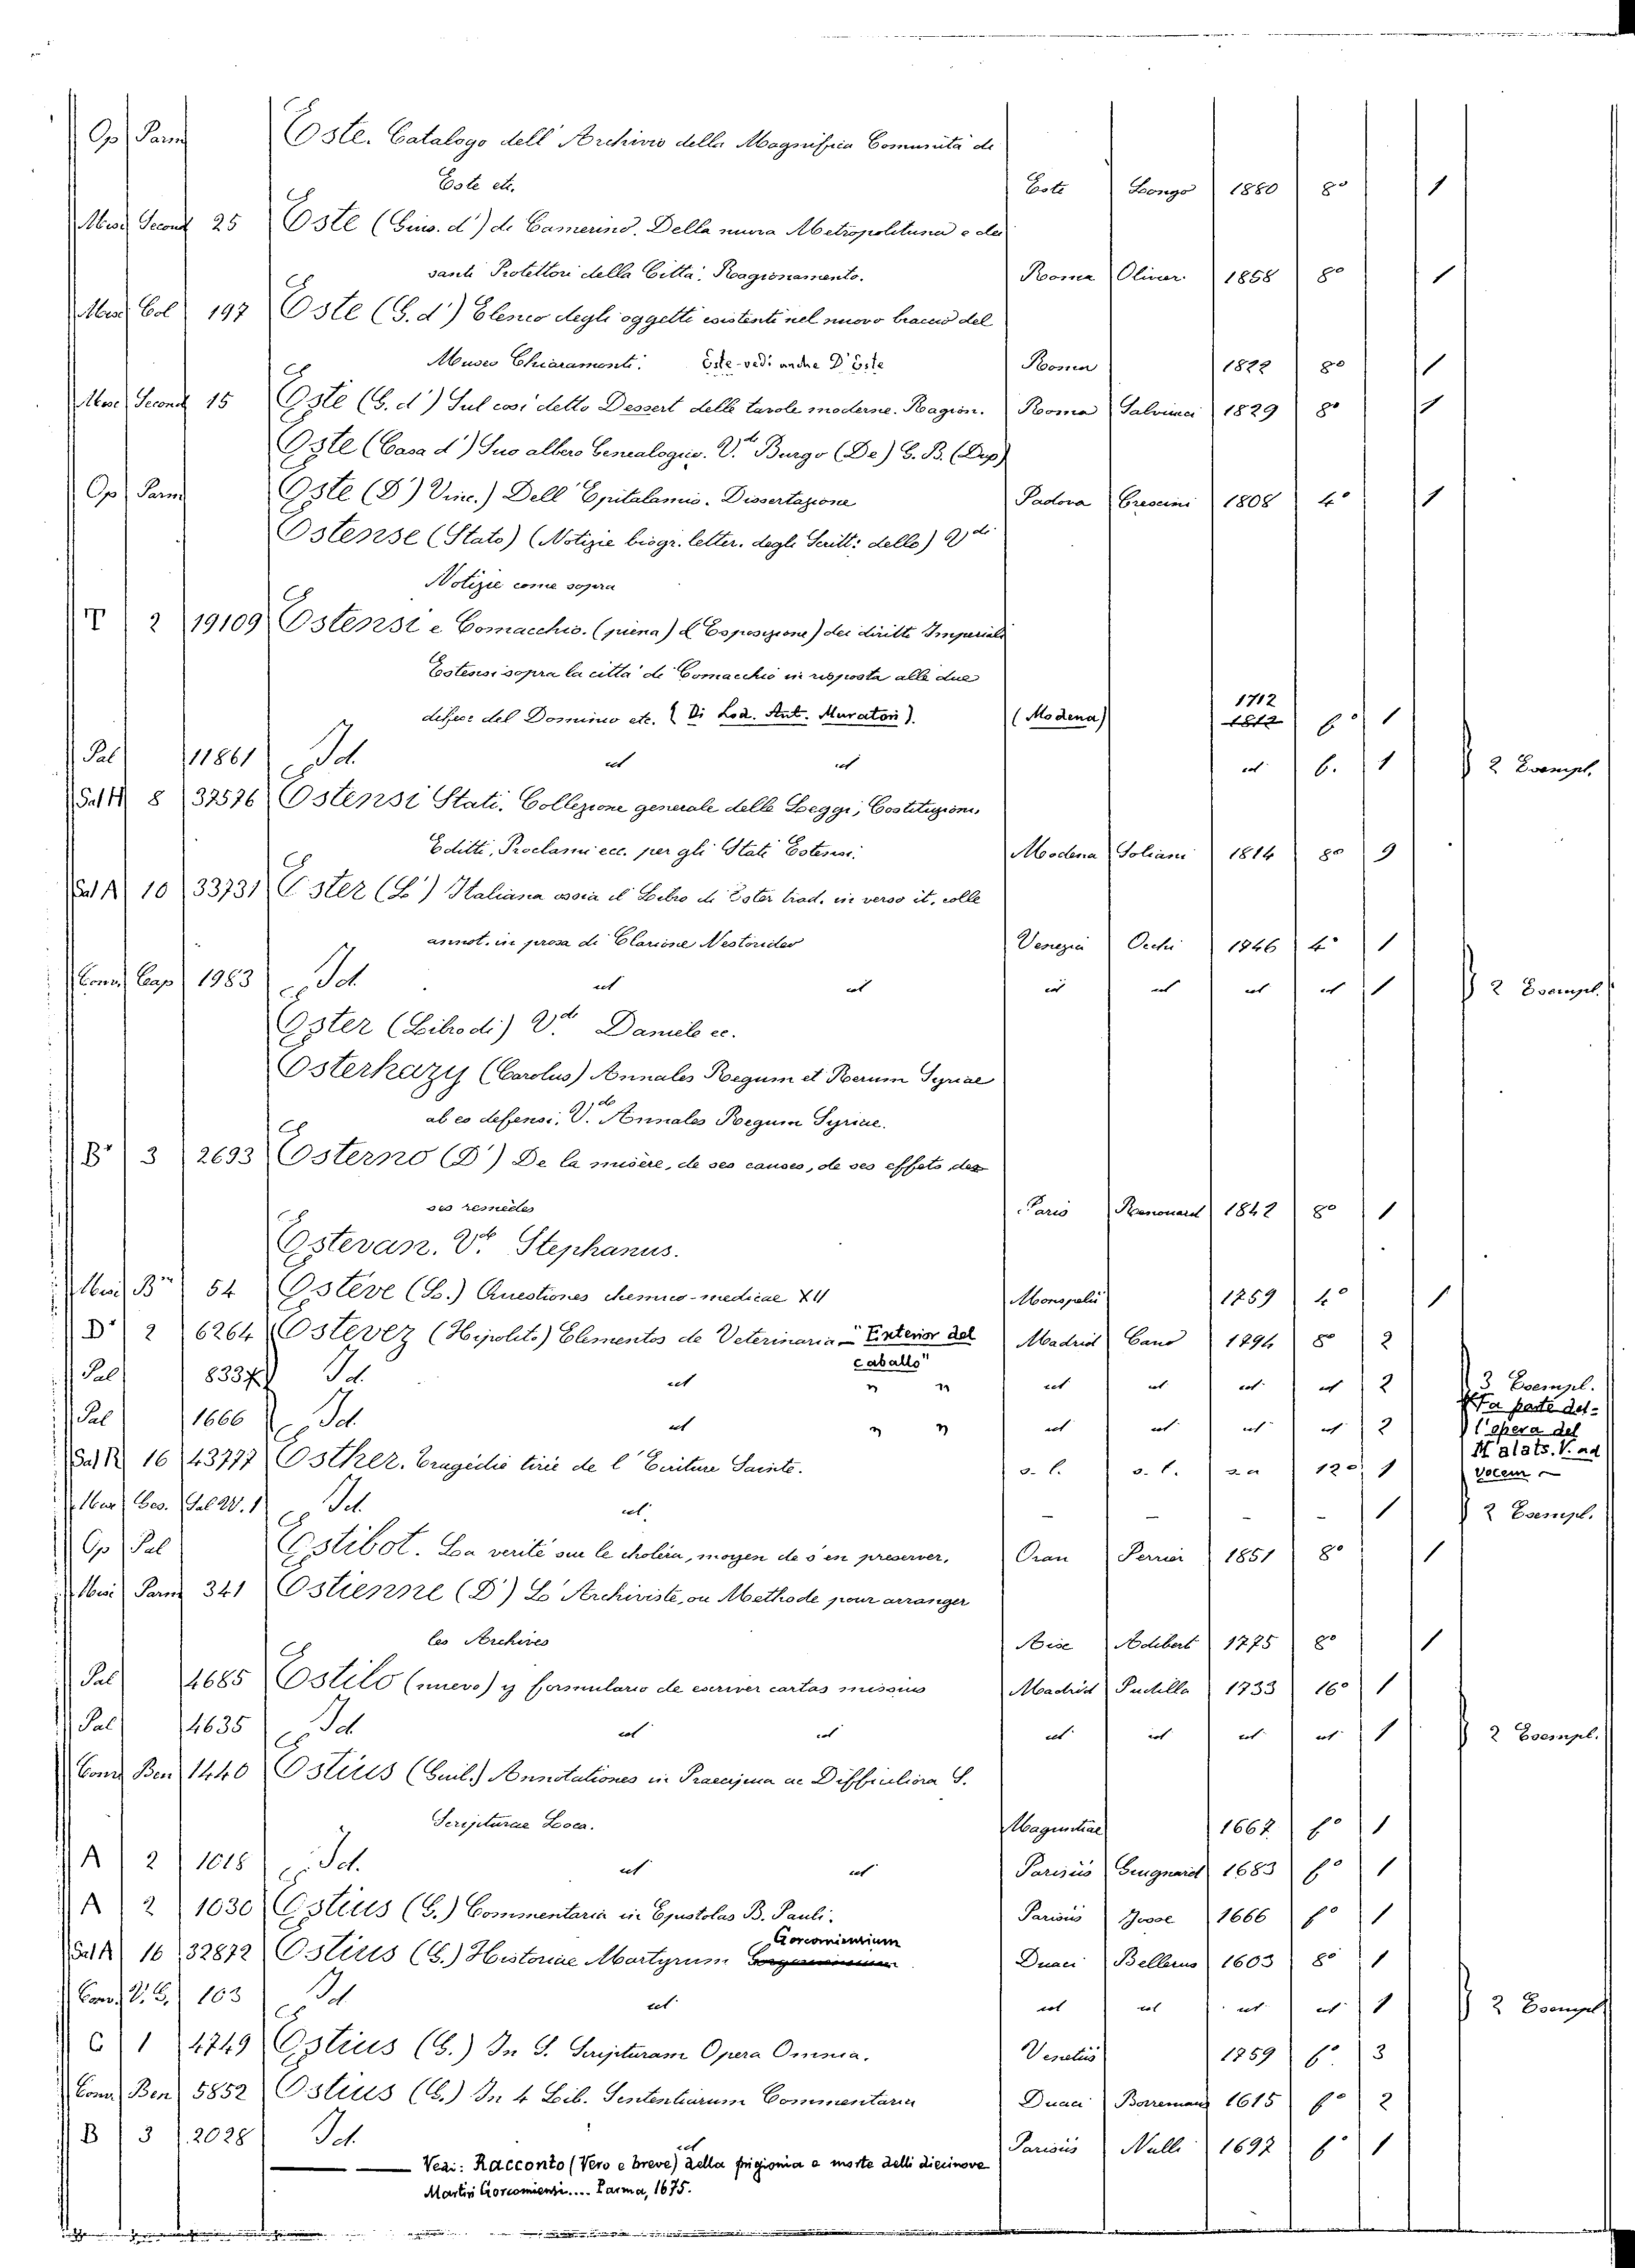 Op. Parm Este. Catalogo dell' Archivio della Magnifica Comunità di
Este etc. Este Longo 1880 8° 1
Misc. Second 25 Este (Gius. d') di Camerino. Della nuova Metropolitana e dei
santi Protettori della Città. Ragionamento. Roma Olivier. 1858 8° 1
Misc. Col 197 Este (G. d') Elenco degli oggetti esistenti nel nuovo braccio del
Museo Chiaramonti. Este - vedi anche D'Este Roma 1822 8° 1
Misc. Second 15 Este (G. d') Sul così detto Dessert delle tavole moderne. Ragion. Roma Salviucci 1829 8° 1
Este (Casa d') Suo albero Genealogico. V. Burgo (De) G. B. (Dep)
Op. Parm Este (D') Vinc.) Dell' Epitalamio. Dissertazione Padova Crescini 1808 4° 1
Estense (Stato) (Notizie biogr. letter. degli Scritt: dello) Vdi
Notizie come sopra
T 2 19109 Estensi e Comacchio. (piena) (Esposizione) dei diritti Imperiali
Estensi sopra la città di Comacchio in risposta alle due
difese del Dominio etc. (Di Lod. Ant. Muratori). (Modena) 1712 1812 f° 1
Pal 11861 Id. id id id f. 1 2 Esempl.
Sal A 8 37576 Estensi Stati. Collezione generale delle Leggi, Costituzioni,
Editti, Proclami ecc. per gli Stati Estensi. Modena Soliani 1814 8° 9
Sal A 10 33731 Ester (L') Italiana ossia il Libro di Ester trad. in verso it. colle
annot. in prosa di Clarione Nestorideo Venezia Occhi 1746 4° 1
Conv. Cap 1983 Id id id id id id id 1 2 Esempl.
Ester (Libro di) Vd. Daniele ec.
Esterhazy (Carolus) Annales Regum et Rerum Syriae
ab eo defensi. V. Annales Regum Syriae.
B' 3 2693 Esterno (D') De la misère, de ses causes, de ses effets, de
ses remèdes Paris Renouard 1842 8° 1
Estevan. Vd. Stephanus.
Misc. B 54 Estève (L.) Questiones chemico-medicae XII Monspelii 1759 4° 1
D' 2 6264 Estevez (Hipolito) Elementos de Veterinaria - "Exterior del caballo" Madrid Cano 1794 8° 2
Pal 8337 Id. id " " id id id id 2 3 Esempl.
Pal 1666 Id. id " " id id id id 2 Fa parte del-
l'opera del
Malats. V. ad
vocem
Sal A 16 43777 Esther. Tragédie tirée de l'Ecriture Sainte. s. l. s. t. s. a 12° 1
Misc. Ges. Sal W. 1 Id. id. - - - - 1 2 Esempl.
Op Pal Estibot. La verité sur le choléra, moyen de s'en preserver. Oran Perrier 1851 8° 1
Misc. Parm 341 Estienne (D') L'Archiviste, ou Methode pour arranger
les Archives Aise Adibert 1775 8° 1
Pal 4685 Estilo (nuevo) y formulario de escriver cartas missivas Madrid Padilla 1733 16° 1
Pal 4635 Id id id id id id id 1 2 Esempl.
Conv. Ben 1440 Estius (Guil.) Annotationes in Praecipua ac Difficiliora S.
Scripturae Loca. Maguntiae 1667 f° 1
A 2 1018 Id. id id Parisiis Guignard 1683 f° 1
A 2 1030 Estius (G.) Commentaria in Epistolas B. Pauli. Parisiis Josse 1666 f° 1
Sal A 16 32872 Estius (G.) Historiae Martyrum Gorcomiensium Duaci Bellerus 1603 8° 1
Conv. V. G. 103 Id. id id id id id 1 2 Esempl
C 1 4749 Estius (G.) In S. Scripturam Opera Omnia. Venetiis 1759 f° 3
Conv. Ben 5852 Estius (G.) In 4 Lib. Sententiarum Commentaria Duaci Borremans 1615 f° 2
B 3 2028 Id. id Parisiis Nulli 1697 f° 1
Vedi: Racconto (Vero e breve) della prigionia e morte delli diecinove
Martiri Gorcomiensi.... Parma, 1675.